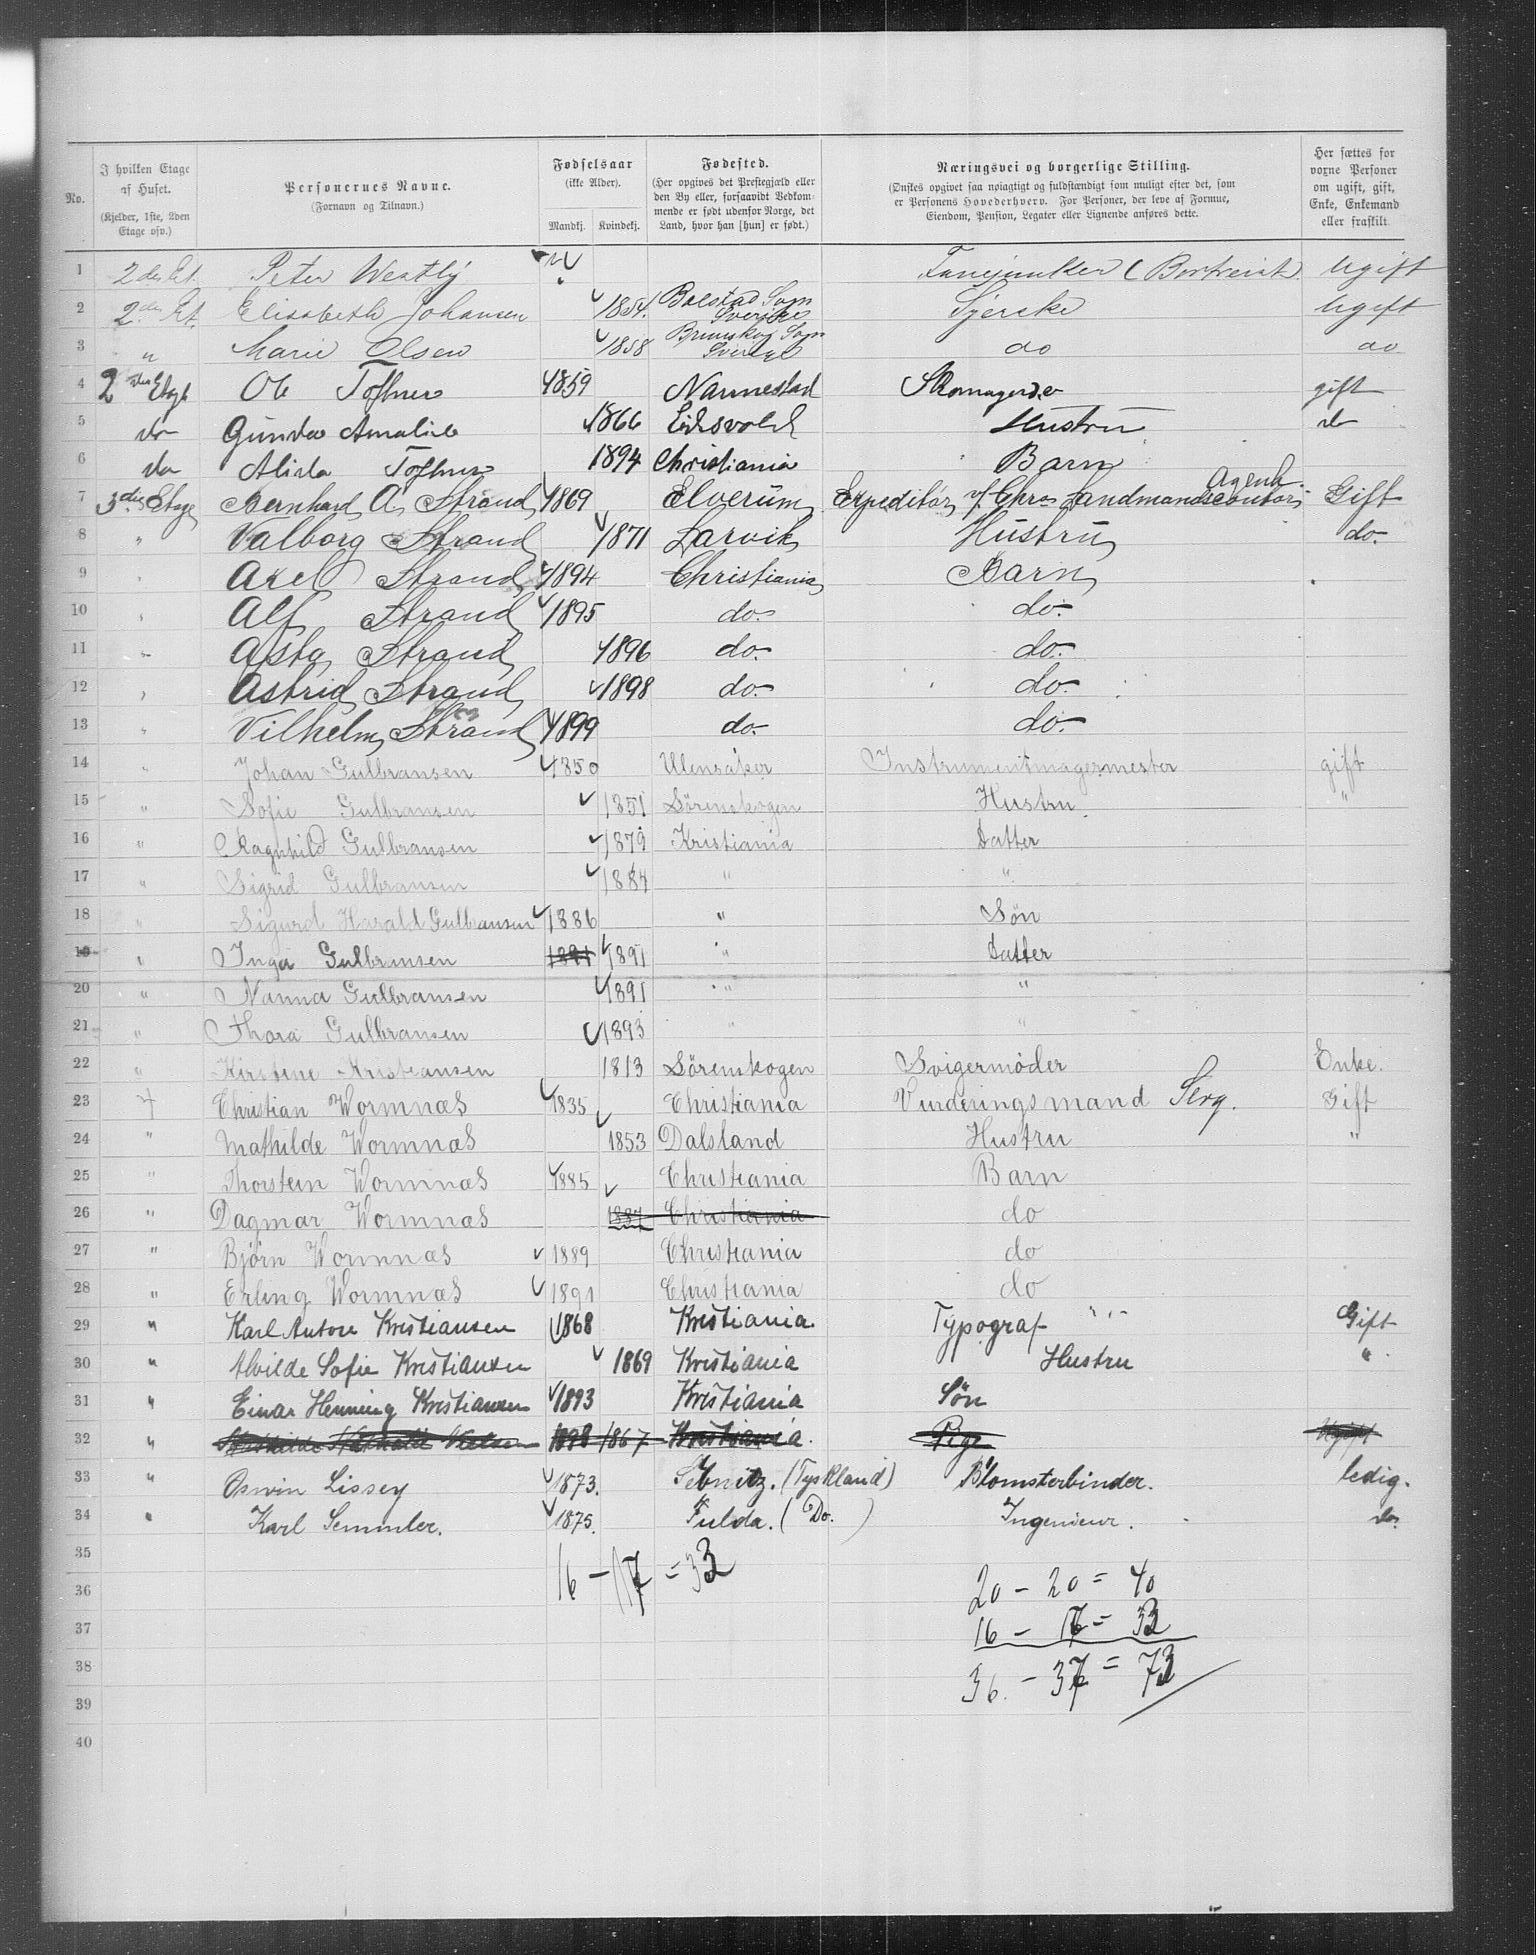 No.
I hvilken Etage af Huset. (Kjelder, 1ste, 2den Etage osv.)
Personernes Navne. (Fornavn og Tilnavn.)
Fødselsaar (ikke Alder).
Mandkj. Kvindekj.
Fødested. (Her opgives det Prestegjæld eller den By eller, forsaavidt Vedkommende er født udenfor Norge, det Land, hvor han [hun] er født.)
Næringsvei og borgerlige Stilling. (Ønskes opgivet saa nøiagtigt og fuldstændigt som muligt efter det, som er Personens Hovederhverv. For Personer, der leve af Formue, Eiendom, Pension, Legater eller Lignende anføres dette.
Her sættes for voxne Personer om ugift, gift, Enke, Enkemand eller fraskilt.
1 2den Et. Peter Westly Ugift
2 2den Et. Elisabeth Johansen 1854. Sogn Sverige Syerske Ugift
3 " Marie Olsen 1858 Sogn Sverige do do
4 2den Etage Ole Toftner 1859 Nannestad Skomager gift
5 do Gunda Amalie 1866 Eidsvold Hustru do
6 do Alida Toftner 1894 Christiania Barn
7 3die Etage Bernhard A. Strand 1869 Elverum Expeditør v/ Chra Landmandscontor Agent Gift
8 " Valborg Strand 1871 Larvik Hustru do.
9 " Axel Strand 1894 Christiania Barn
10 " Alf Strand 1895 do. do.
11 " Asta Strand 1896 do. do.
12 " Astrid Strand 1898 do. do.
13 " Vilhelm Strand 1899 do. do.
14 " Johan Gulbransen 1850 Ulensaker Instrumentmagermester gift
15 " Sofie Gulbransen 1851 Sörenskogen Hustru "
16 " Ragnhild Gulbransen 1879 Kristiania Datter
17 " Sigrid Gulbransen 1884 " "
18 " Sigurd Harald Gulbransen 1886 " Søn
19 " Inga Gulbransen 1891 1891 " Datter
20 " Nanna Gulbransen 1891 " "
21 " Thora Gulbransen 1893 " "
22 " Kirstine Kristiansen 1813 Sörenskogen Svigermoder Enke.
23 " Christian Wormnæs 1835 Christiania Vurderingsmand Gift
24 " Mathilde Wormnæs 1853 Dalsland Hustru "
25 " Thorstein Wormnæs 1885 Christiania Barn
26 " Dagmar Wormnæs 1887 Christiania do
27 " Bjørn Wormnæs 1889 Christiania do
28 " Erling Wormnæs 1891 Christiania do
29 " Karl Anton Kristiansen 1868 Kristiania Typograf Gift
30 " Alvilde Sofie Kristiansen 1869 Kristiania Hustru "
31 " Einar Henning Kristiansen 1893 Kristiania Søn
32 " Nielsen 1867 Kristiania. Pige Ugift
33 " Oswin Lissey 1873. Sebnitz. (Tyskland) Blomsterbinder. ledig.
34 " Karl Semmler. 1875. Fulda. (Do.) Ingenieur. do.
35
36
37
38
39
40
16 - 17 = 33
20 - 20 = 40
16 - 17 = 33
36. - 37 = 73